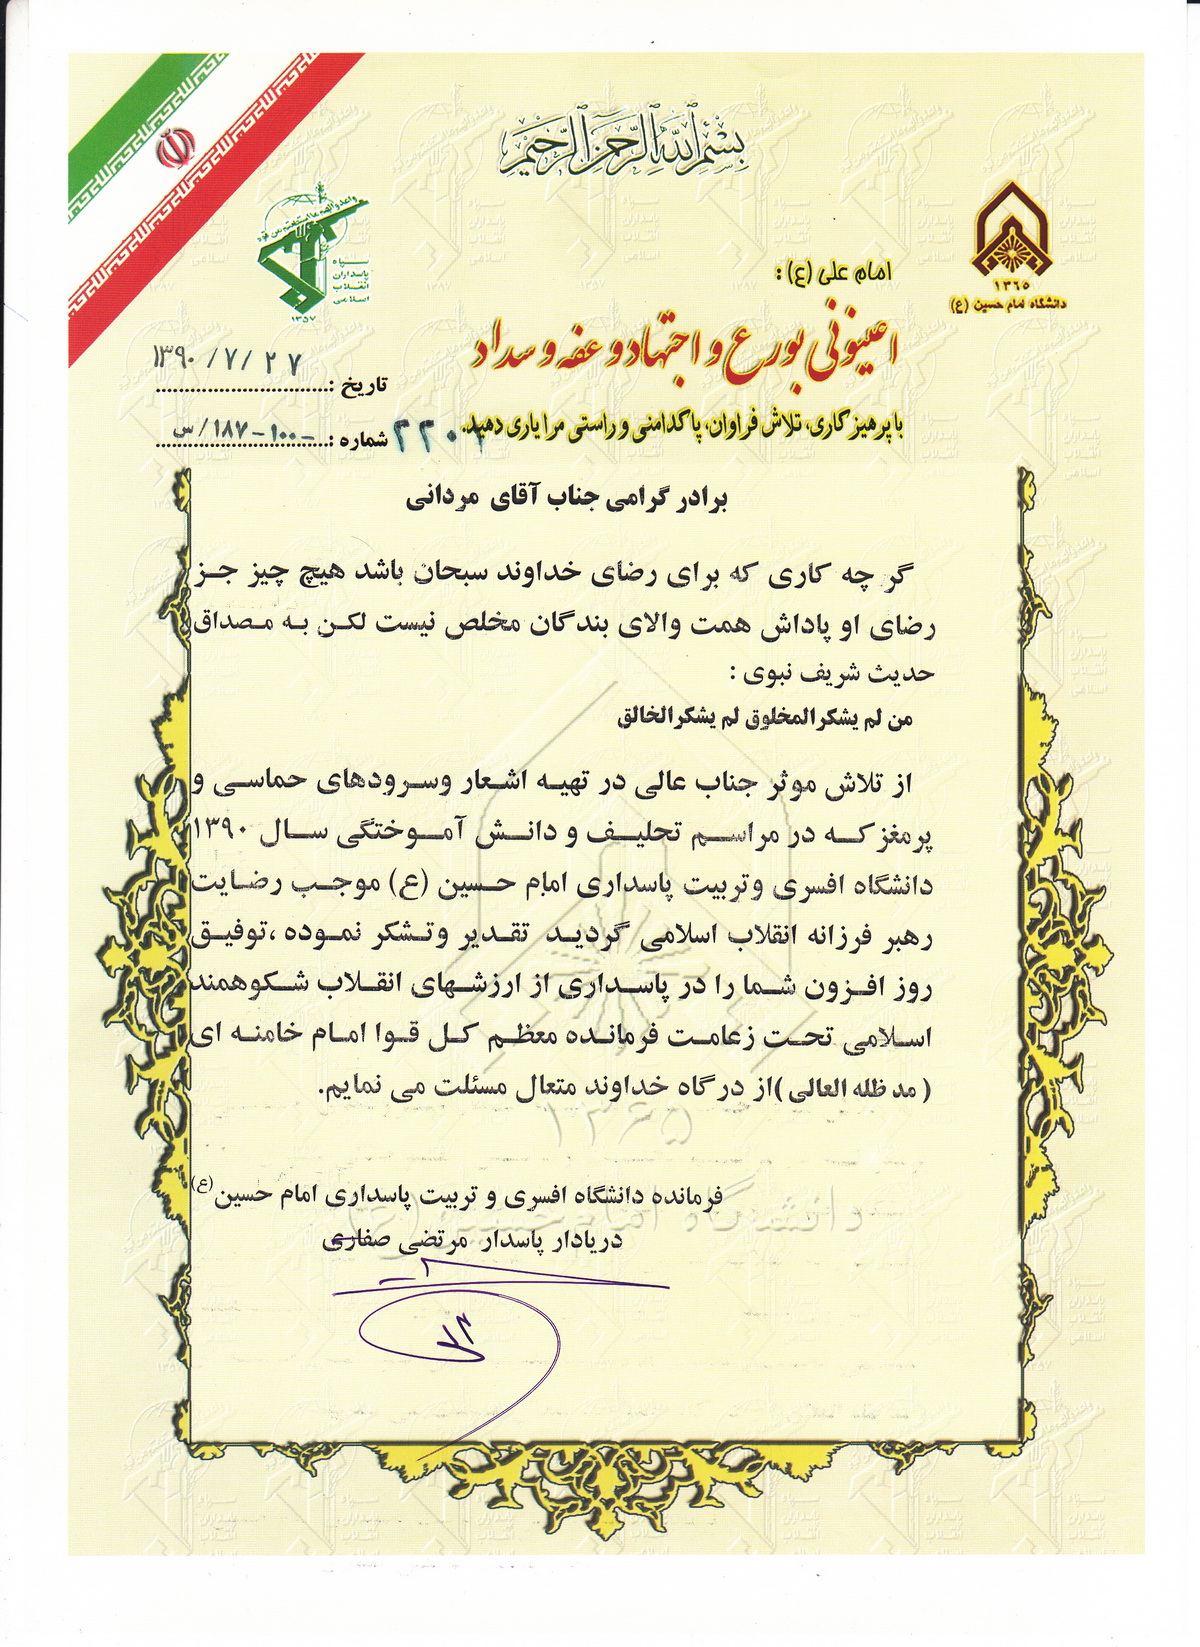 بسم الله الرحمن الرحیم
واعدوا لهم ما استطعتم من قوة
سپاه
پاسداران
انقلاب
اسلامی
۱۳۵۷
۱۳۶۵
دانشگاه امام حسین (ع)
امام علی (ع) :
اعینونی بورع و اجتهاد و عفه و سداد
با پرهیزکاری، تلاش فراوان، پاکدامنی و راستی مرا یاری دهید.
تاریخ : ۱۳۹۰/۷/۲۷
شماره : ۱۰۰-۱۸۷/س
برادر گرامی جناب آقای مردانی
گر چه کاری که برای رضای خداوند سبحان باشد هیچ چیز جز
رضای او پاداش همت والای بندگان مخلص نیست لکن به مصداق
حدیث شریف نبوی :
من لم یشکرالمخلوق لم یشکرالخالق
از تلاش موثر جناب عالی در تهیه اشعار وسرودهای حماسی و
پرمغز که در مراسم تحلیف و دانش آموختگی سال ۱۳۹۰
دانشگاه افسری وتربیت پاسداری امام حسین (ع) موجب رضایت
رهبر فرزانه انقلاب اسلامی گردید تقدیر وتشکر نموده ،توفیق
روز افزون شما را در پاسداری از ارزشهای انقلاب شکوهمند
اسلامی تحت زعامت فرمانده معظم کل قوا امام خامنه ای
( مد ظله العالی )از درگاه خداوند متعال مسئلت می نمایم.
۱۳۶۵
دانشگاه امام حسین (ع)
فرمانده دانشگاه افسری و تربیت پاسداری امام حسین(ع)
دریادار پاسدار مرتضی صفاری